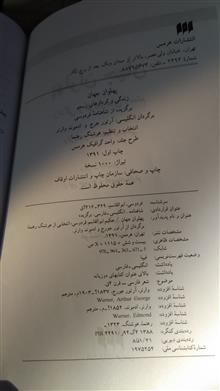 انتشارات هرمس
تهران، خیابان ولی عصر، بالاتر از میدان ونک،
پهلوان جهان
زندگی و کردارهای رستم
برگزیده از شاهنامهٔ فردوسی
برگردان انگلیسی: آرتور جرج و ادموند وارنر
انتخاب و تنظیم: هوشنگ رهنما
طرح جلد: واحد گرافیک هرمس
چاپ اول: ۱۳۹۱
تیراژ: ۱۰۰۰ نسخه
چاپ و صحافی: سازمان چاپ و انتشارات اوقاف
همهٔ حقوق محفوظ است.
سرشناسه فردوسی، ابوالقاسم، ۳۲۹-۴۱۶؟ق.
عنوان قراردادی شاهنامه. انگلیسی-فارسی. برگزیده
عنوان و نام پدیدآور پهلوان جهان / حکیم ابوالقاسم فردوسی؛ انتخابی از هوشنگ رهنما؛
مشخصات نشر تهران: هرمس،
مشخصات ظاهری بیست و شش،
شابک
وضعیت فهرست‌نویسی فیپا
یادداشت انگلیسی-فارسی
یادداشت بالای عنوان: کتابهای دوزبانه
موضوع شعر فارسی -- قرن ۴ق.
شناسهٔ افزوده وارنر، آرتور جورج، مترجم
شناسهٔ افزوده Warner, Arthur George
شناسهٔ افزوده وارنر، ادموند، مترجم
شناسهٔ افزوده Warner, Edmond
شناسهٔ افزوده رهنما، هوشنگ، ۱۳۲۴-
رده‌بندی کنگره PIR
رده‌بندی دیویی ۸فا۱/۲۱
شمارهٔ کتابشناسی ملی ۱۹۷۵۲۵۲